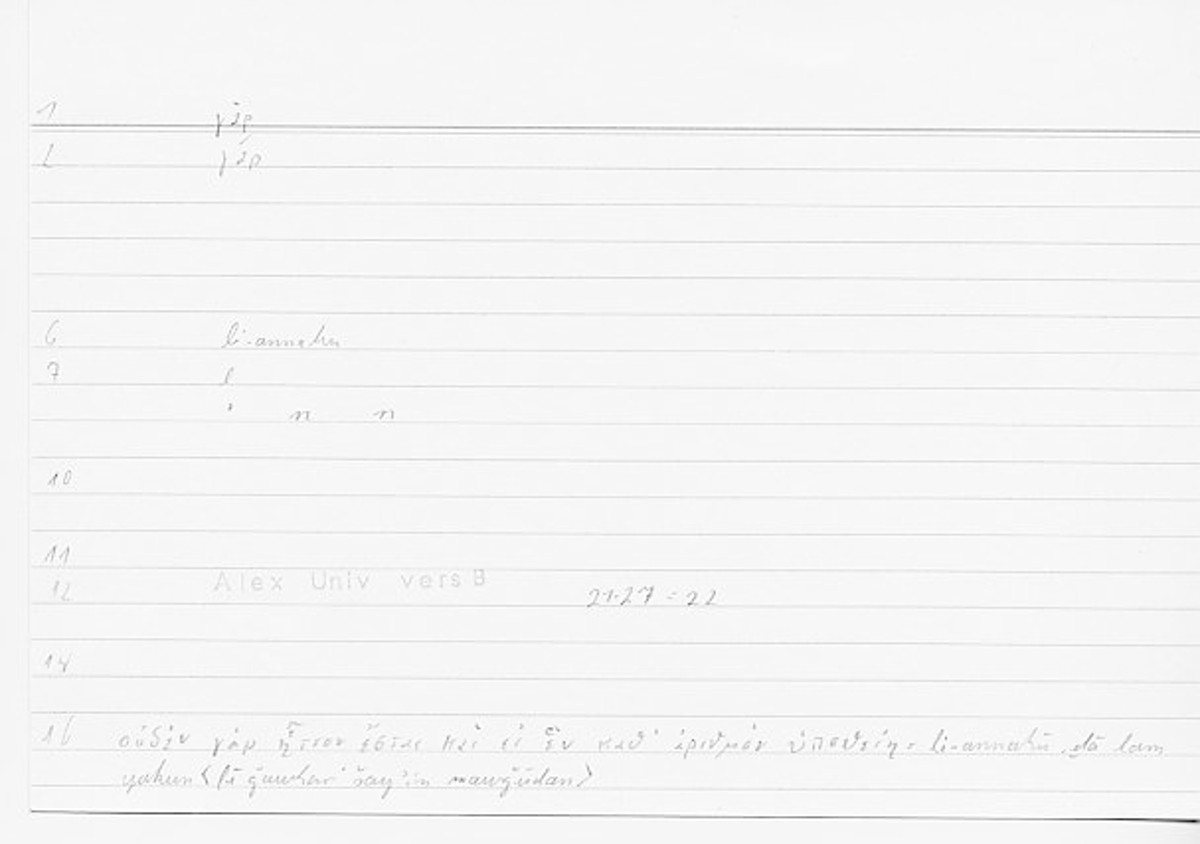 1 γὰρ
2 γάρ
6 li-annahu
7 l
' n n
10
11
Alex Univ vers B
12 21-27 = 22
14
16 οὐδὲν γὰρ ἧττον ἔσται καὶ εἰ ἓν καθ' ἀριθμὸν ὑποθείη = li-annahū iḏā lam
yakun <fī ǧawhar šayʾin mawǧūdan>